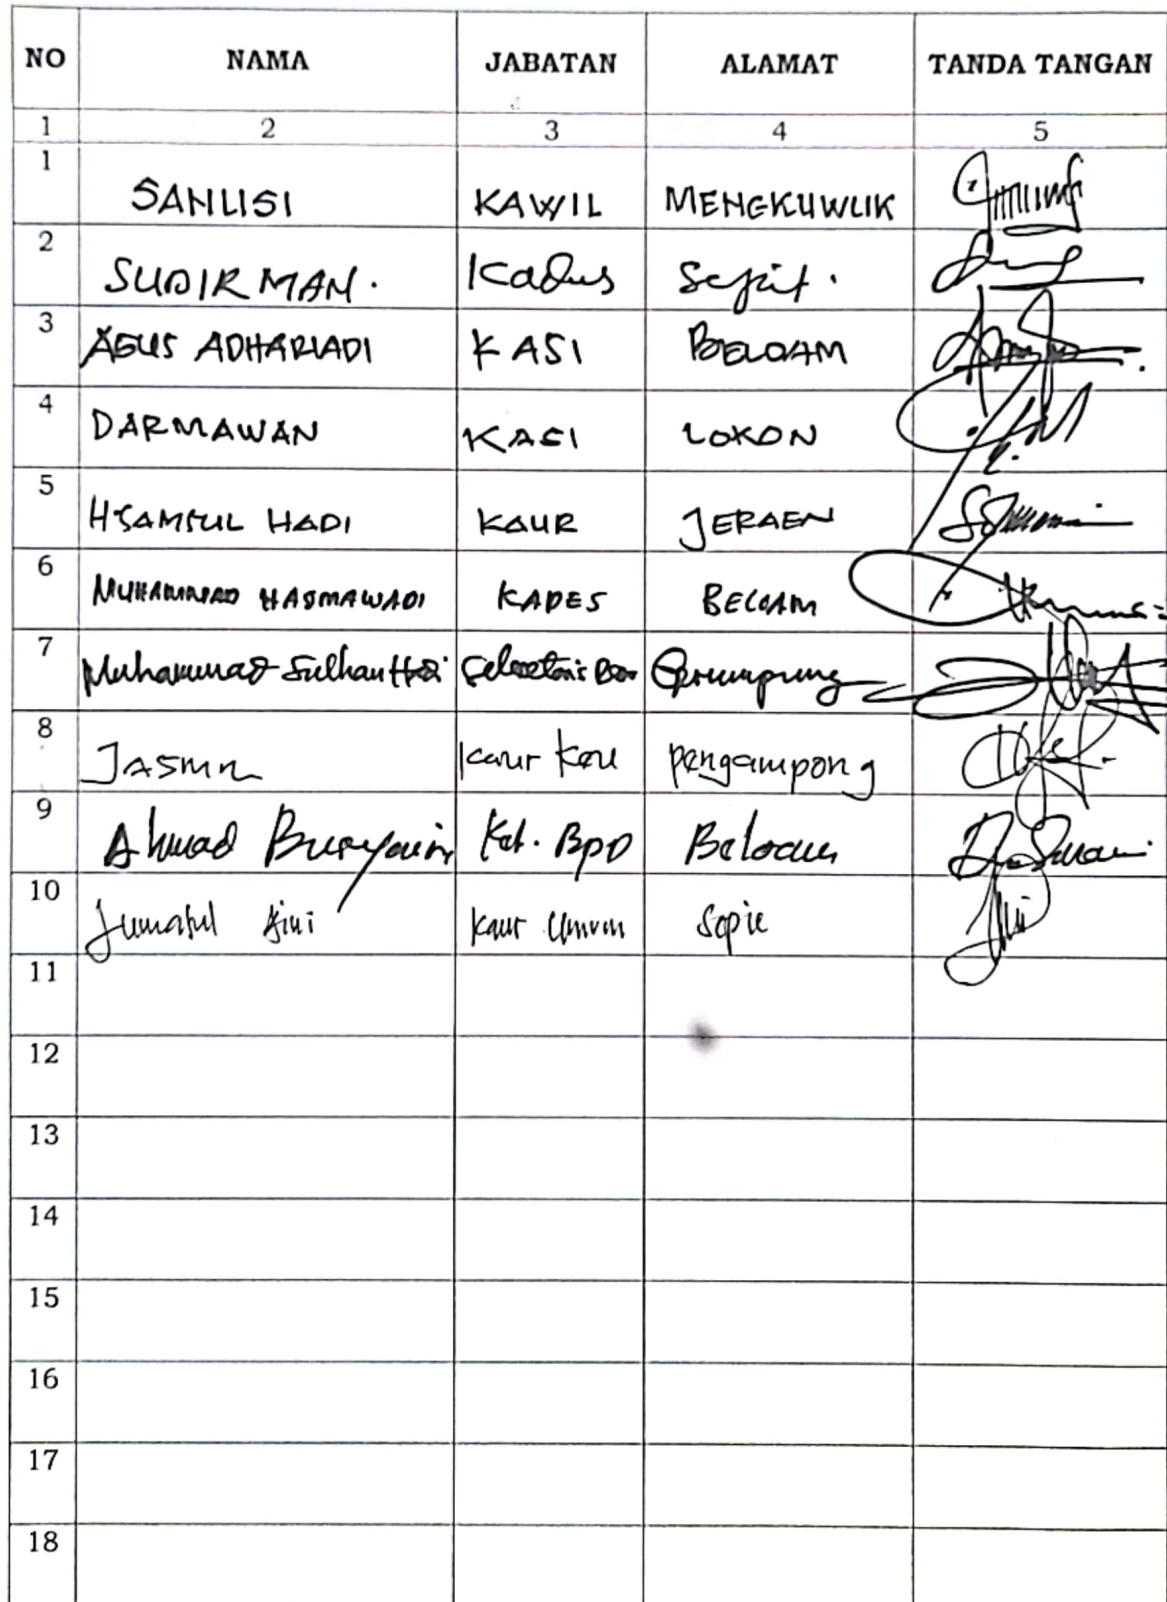 NO NAMA JABATAN ALAMAT TANDA TANGAN
1 2 3 4 5
1 SANLISI KAWIL MENGKUWLIK
2 SUDIRMAN. Kadus
3 AGUS ADHARIADI KASI BELOAM
4 DARMAWAN KASI LOKON
5 HSAMSUL HADI KAUR JERAEN
6 MUHAMMAD HASMAWADI KADES BELOAM
7 Muhammad Sulhan Hadi
8 Jasmn Kaur Keu pengampong
9 Ahmad Ket. BPD Beloam
10 Kaur Umum Sopie
11
12
13
14
15
16
17
18